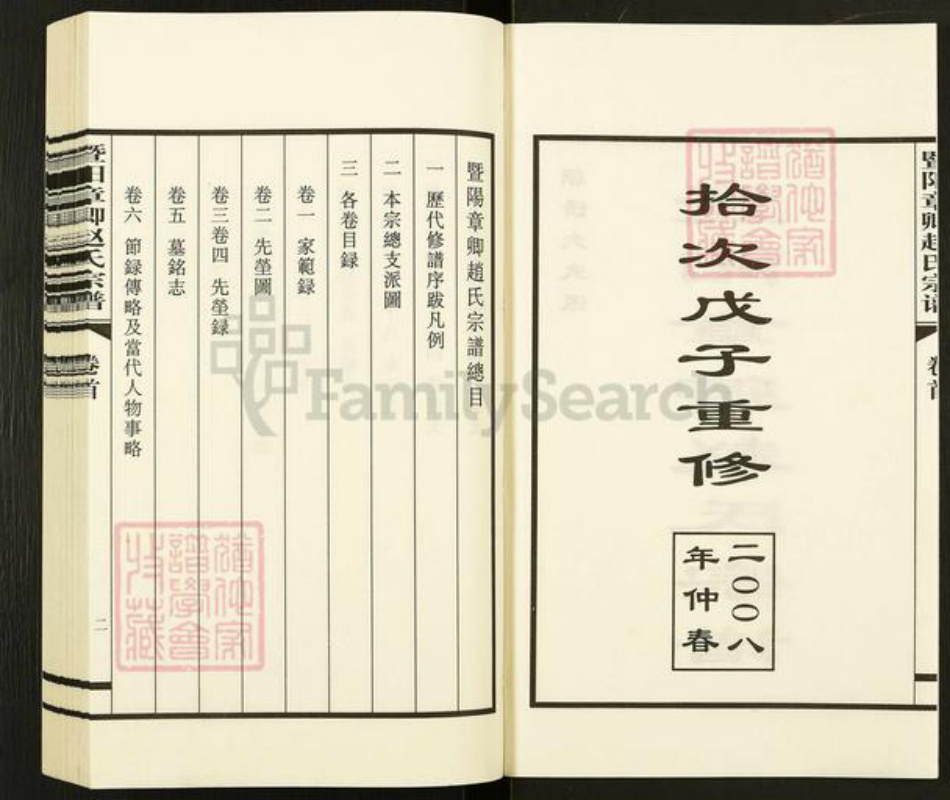 暨陽章卿趙氏宗譜
卷首
拾次戊子重修
二〇〇八
年仲春
暨陽章卿趙氏宗譜總目
一 歷代修譜序跋凡例
二 本宗總支派圖
三 各卷目録
卷一 家範録
卷二 先塋圖
卷三卷四 先塋録
卷五 墓銘志
卷六 節録傳略及當代人物事略
暨陽章卿赵氏宗譜
卷首
二
FamilySearch